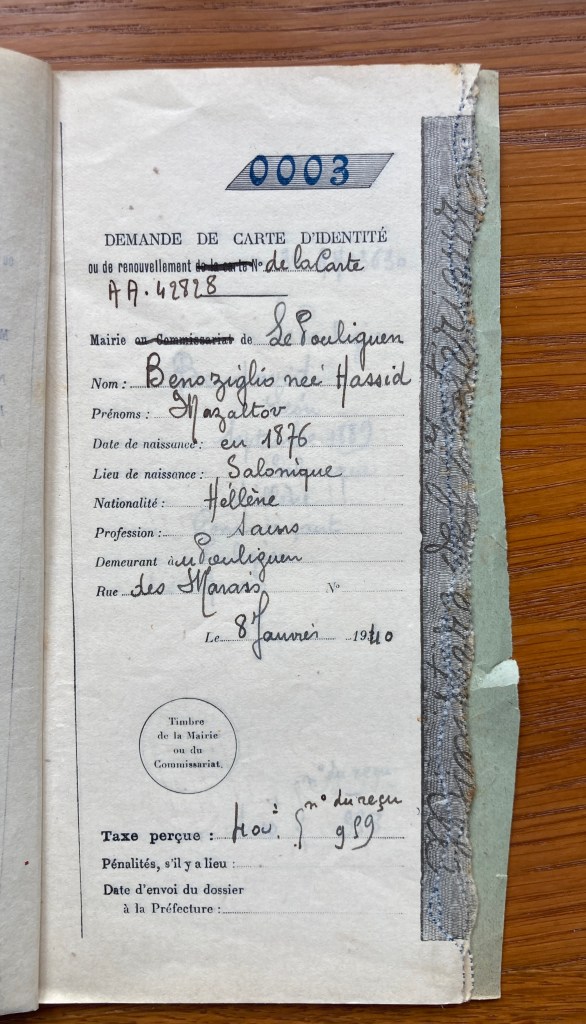 0003
DEMANDE DE CARTE D'IDENTITÉ
ou de renouvellement de la carte N° de la Carte
AA. 42828
Mairie ou Commissariat de Le Pouliguen
Nom : Benoziglio neé Hassid
Prénoms : Mazaltov
Date de naissance : en 1876
Lieu de naissance : Salonique
Nationalité : Héllène
Profession : sans
Demeurant à au Pouliguen
Rue des Marais N°
Le 8 Janvier 1940
Timbre
de la Mairie
ou du
Commissariat.
n° du reçu
Taxe perçue : 959
Pénalités, s'il y a lieu :
Date d'envoi du dossier
à la Préfecture :